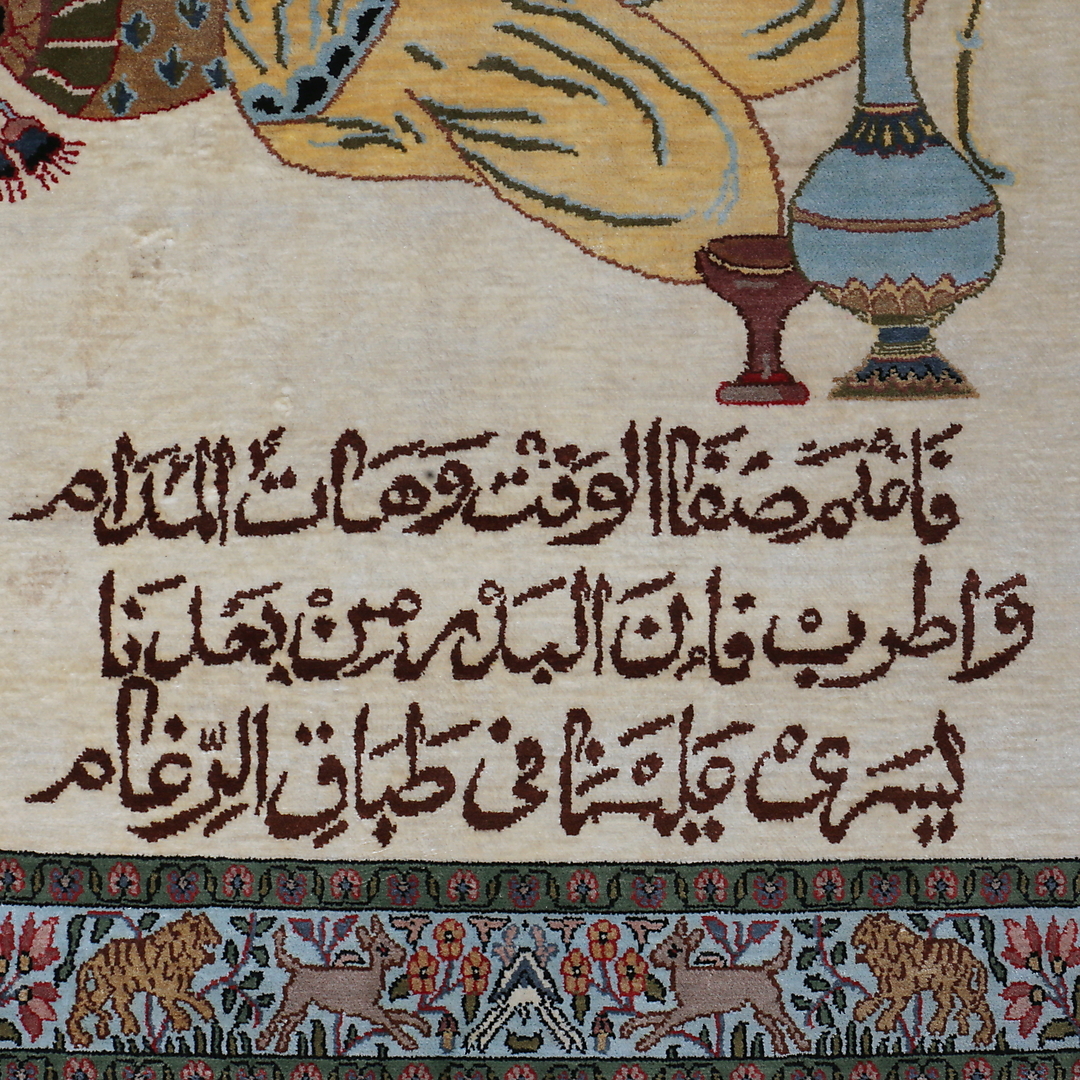 فاغنم صفا الوقت وهات المدام
واطرب فإن البدر من بعدنا
يسرى علينا فى طباق الرّغام